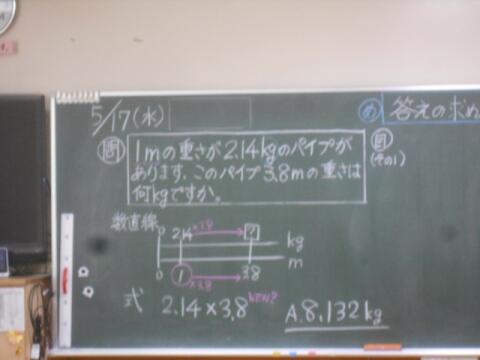 5/17(水)
め 答えの求め
問 1mの重さが2.14kgのパイプが
あります。このパイプ3.8mの重さは
何kgですか。
図
(その1)
数直線
0 2.14 ×3.8 ? kg
0 1 ×3.8 3.8 m
式 2.14×3.8 NEW? A.8.132kg